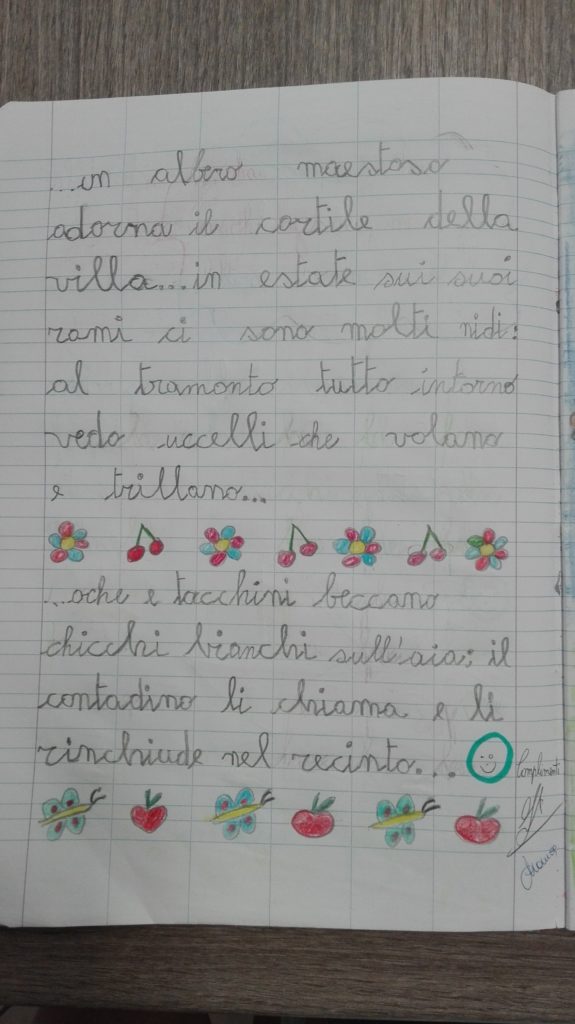 ...un albero maestoso
adorna il cortile della
villa...in estate sui suoi
rami ci sono molti nidi:
al tramonto tutto intorno
vedo uccelli che volano
e trillano...
...oche e tacchini beccano
chicchi bianchi sull'aia; il
contadino li chiama e li
rinchiude nel recinto...
Complimenti